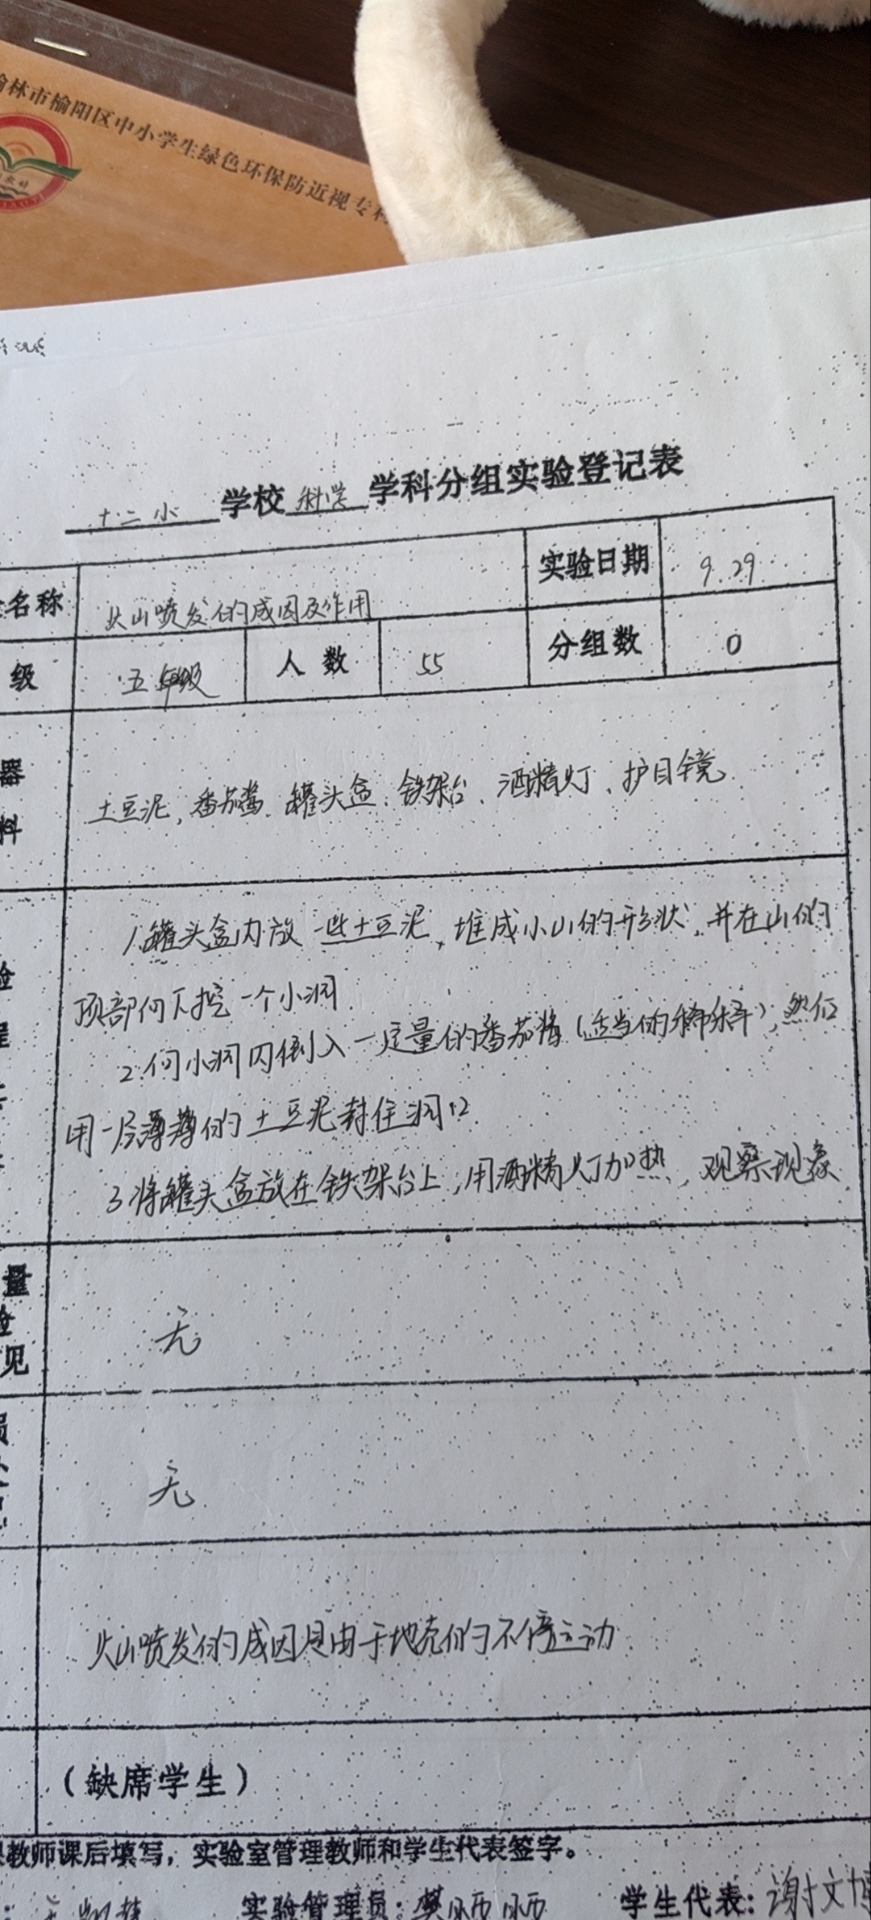 榆林市榆阳区中小学生绿色环保防近视专
十二小 学校 科学 学科分组实验登记表
名称 火山喷发的成因及作用 实验日期 9.29
级 五年级 人数 55 分组数 0
器
料
土豆泥、番茄酱、罐头盒、铁架台、酒精灯、护目镜
1.罐头盒内放一些土豆泥,堆成小山的形状,并在山的
顶部向下挖一个小洞
2.向小洞内倒入一定量的番茄酱(适当的稀释),然后
用一层薄薄的土豆泥封住洞口
3.将罐头盒放在铁架台上,用酒精灯加热,观察现象
量
见
无
无
火山喷发的成因是由于地壳的不停运动
(缺席学生)
教师课后填写,实验室管理教师和学生代表签字。
实验管理员: 学生代表:谢文博